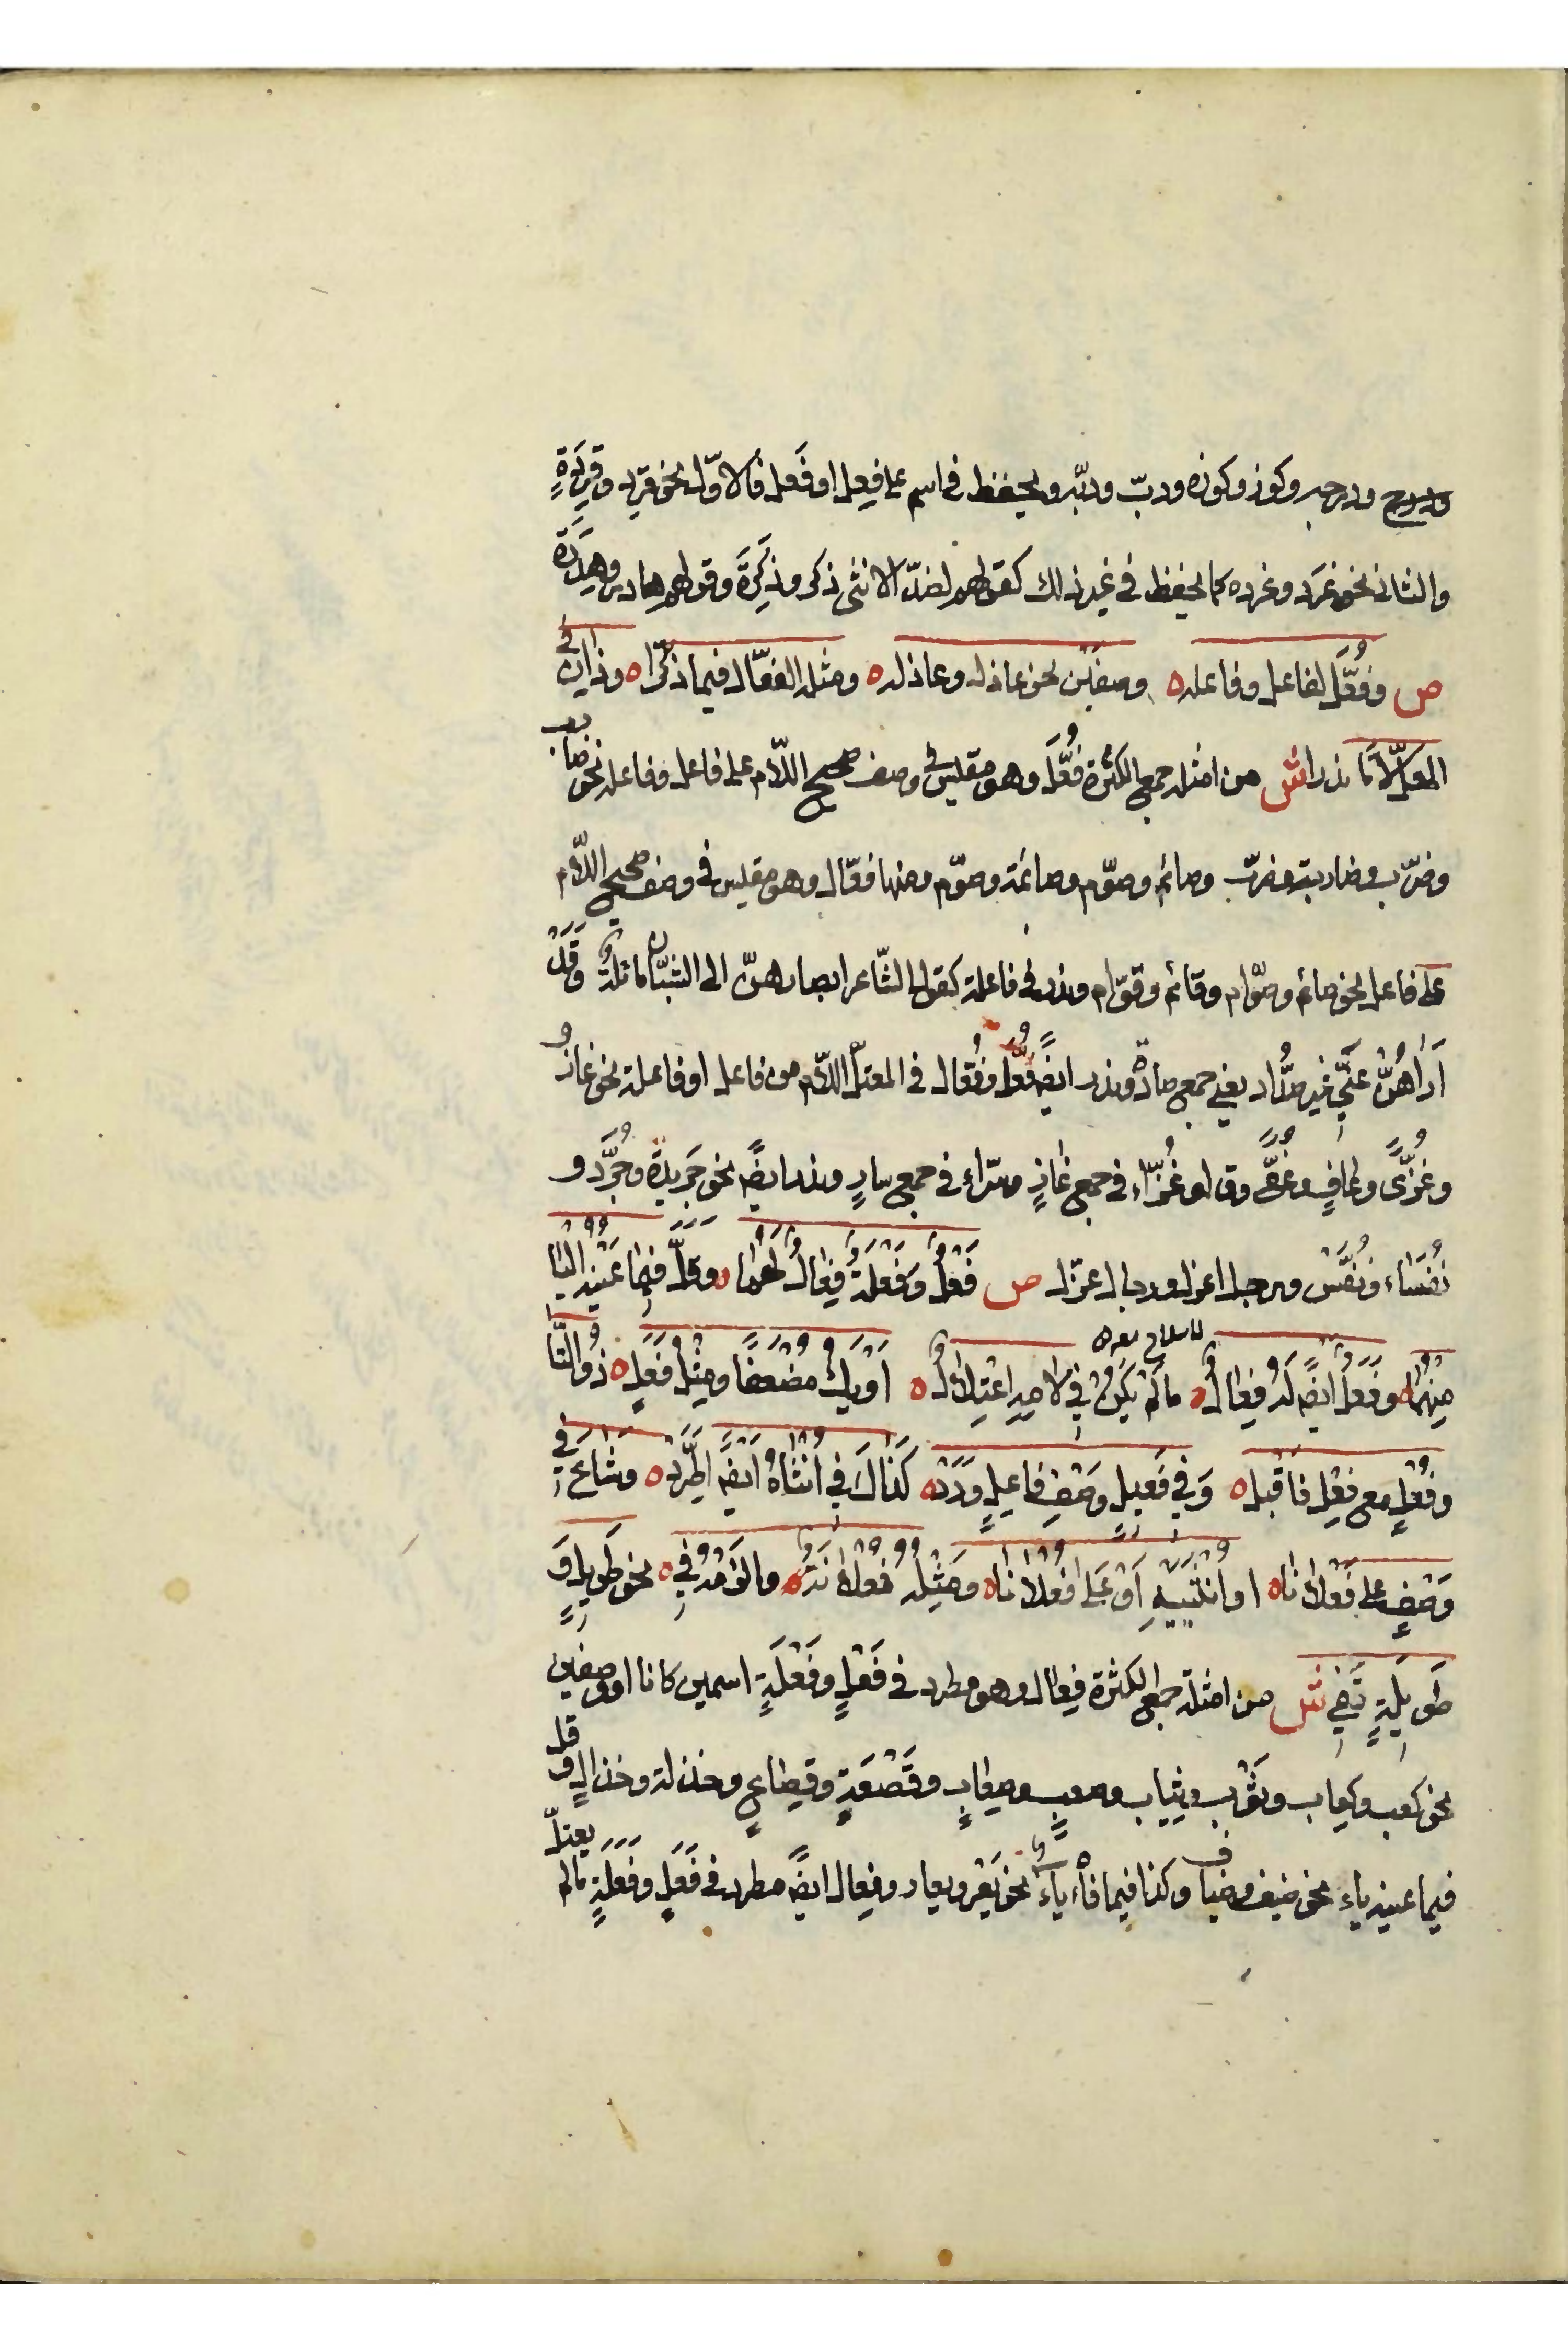 ودرج ودرجه وكوز وكوزه ودبّ ودببه ويحفظ في اسم على فِعل او فَعل فالاوّل نحو قرد وقِرَدَةٍ
والثاني نحو غَرَد وغرده كما يحفظ في غير ذلك كقولهم لضدّ الانثى ذكر وذِكَرَةَ وقولهم هادر وهِدَرَة
ص وفُعَّل لفاعل وفاعله ه وصفَيْن نحو عاذل وعاذله ه ومثله الفعّال فيما ذكّرا ه وذان في
المعلّ لاما ندرا ش من امثله جمع الكثرة فُعَّل وهو مقيس في وصف صحيح اللّام على فاعل وفاعله نحو ضارب
وضرّب وضاربة وضرّب وصائم وصوّم وصائمة وصوّم ومنها فعّال وهو مقيس في وصف صحيح اللّام
على فاعل نحو صائم وصوّام وقائم وقوّام وندر في فاعلة كقول الشّاعر ابصارهنّ الى الشبّان مائلةٌ وَقَدْ
اَرَاهُنَّ عَنِّي غير صُدَّاد يعني جمع صادّة وندر ايضًا فُعَّل وفُعّال في المعتلّ اللّام من فاعل او فاعلة نحو غازٍ
وغُزًّى وعافٍ وعُفًّى وقالو غُزّاء في جمع غازٍ وسرّاء في جمع سارٍ وندر ايضًا نحو خَرِيدَة وخُرَّد و
نُفَسَاء ونُفَّس ورجل اعزل ورجال عزّل ص فَعْلٌ وَفَعْلَةٌ فِعَالٌ لَهُمَا ه وقلّ فيما عَيْنه اليَا
مِنْهُمَا ه وفَعَلٌ ايضًا لَهُ فِعَالُ ه مالم يَكُنْ فِي لامِهِ اعْتِلالُ ه اَوْ يَكُ مُضْعَفًا ومِثْلُ فَعَلٍ ه ذُو التَّا
وفُعْلٍ مع فِعْلٍ فاقبل ه وَفي فَعِيل وَصْفَ فاعِلٍ وَرَدْ ه كَذَاكَ فِي اُنْثَاهُ اَيْضًا اطَّرَدْ ه وشَاعَ فِي
وَصْفٍ على فَعْلانَا ه او اُنْثَيَيْهِ اَوْ عَلى فُعْلانَا ه ومِثْلُهُ فُعْلانَةٌ ه والزَمْهُ فِي ه نحو طَوِيلٍ وَ
طَوِيلَةٍ تَفِي ش من امثلة جمع الكثرة فِعال وهو مطرد في فَعْلٍ وفَعْلَةٍ اسمين كانا او وصفين
نحو كعب وكِعاب وثَوْب وثِياب وصعبٍ وصِعابٍ وقَصْعَةٍ وقِصَاعٍ وخذلة وخذالٍ وقل
فيما عينه ياء نحو ضيف وضياف وكذا فيما فاءه ياءٌ نحو يَعْرٍ ويعار وفِعال ايضًا مطرد في فَعَلٍ وفَعَلَةٍ مالم يعتلّ